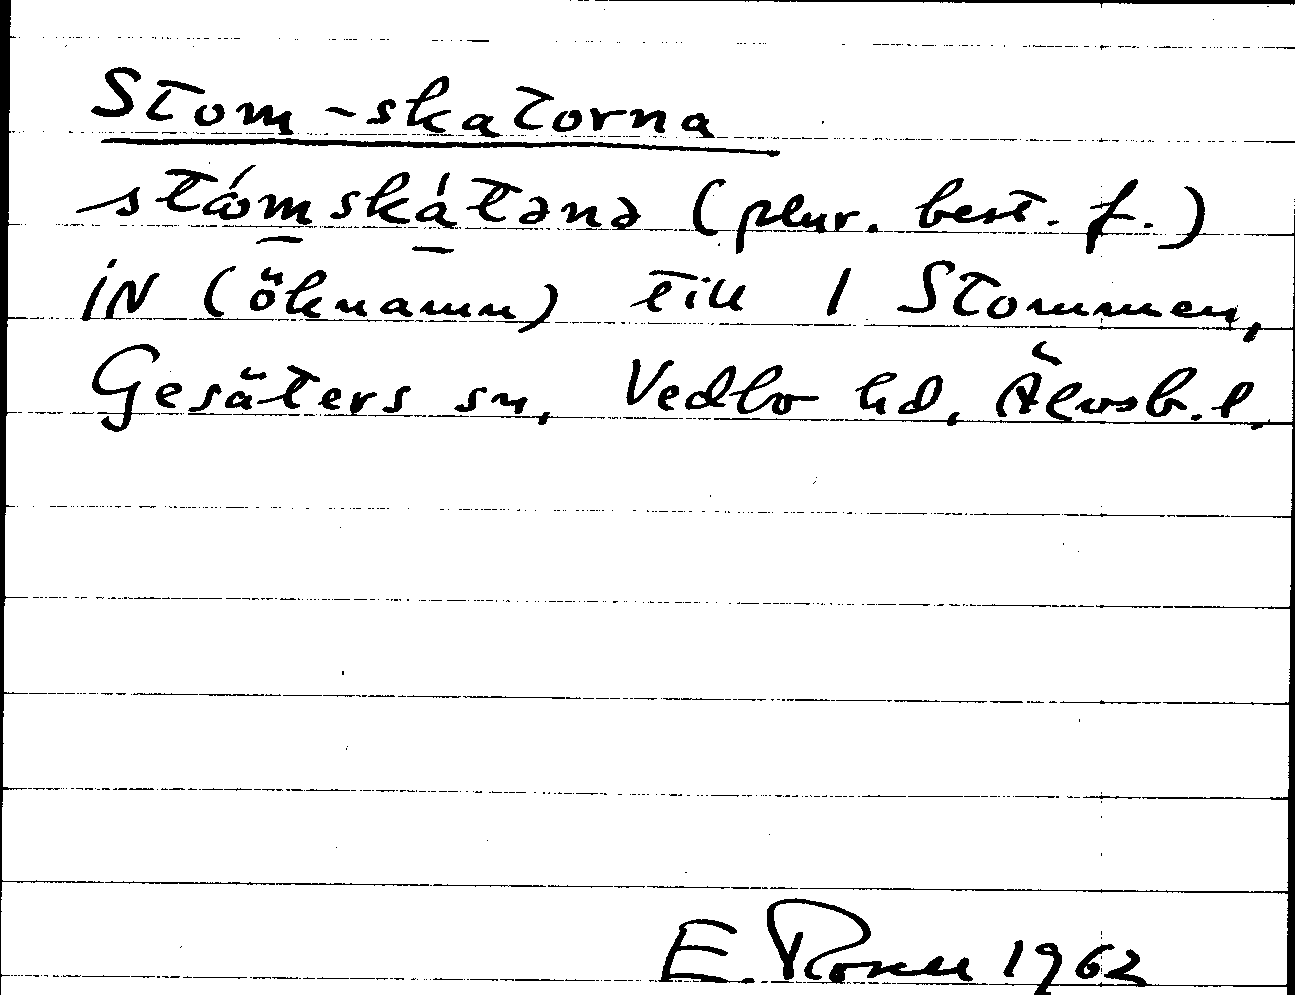 Stom-skatorna
stómskátənə (plur. best. f.)
iN (öknamn) till 1 Stommen,
Gesäters sn, Vedbo hd, Älvsb. l.
E. Rosell 1962